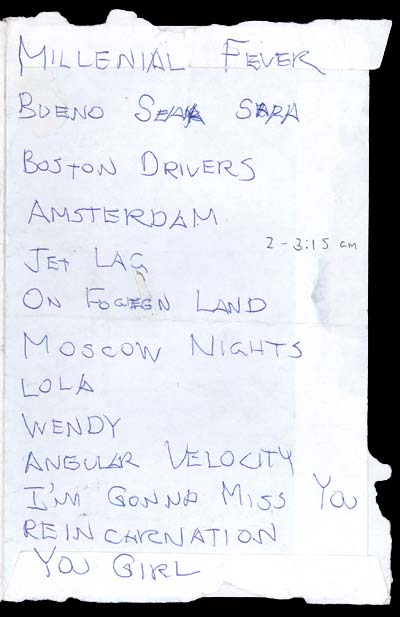 MILLENIAL FEVER
BUENO SERA SERA
BOSTON DRIVERS
AMSTERDAM
2 - 3:15 am
JET LAG
ON FOREGN LAND
MOSCOW NIGHTS
LOLA
WENDY
ANGULAR VELOCITY
I'M GONNA MISS YOU
REINCARNATION
YOU GIRL